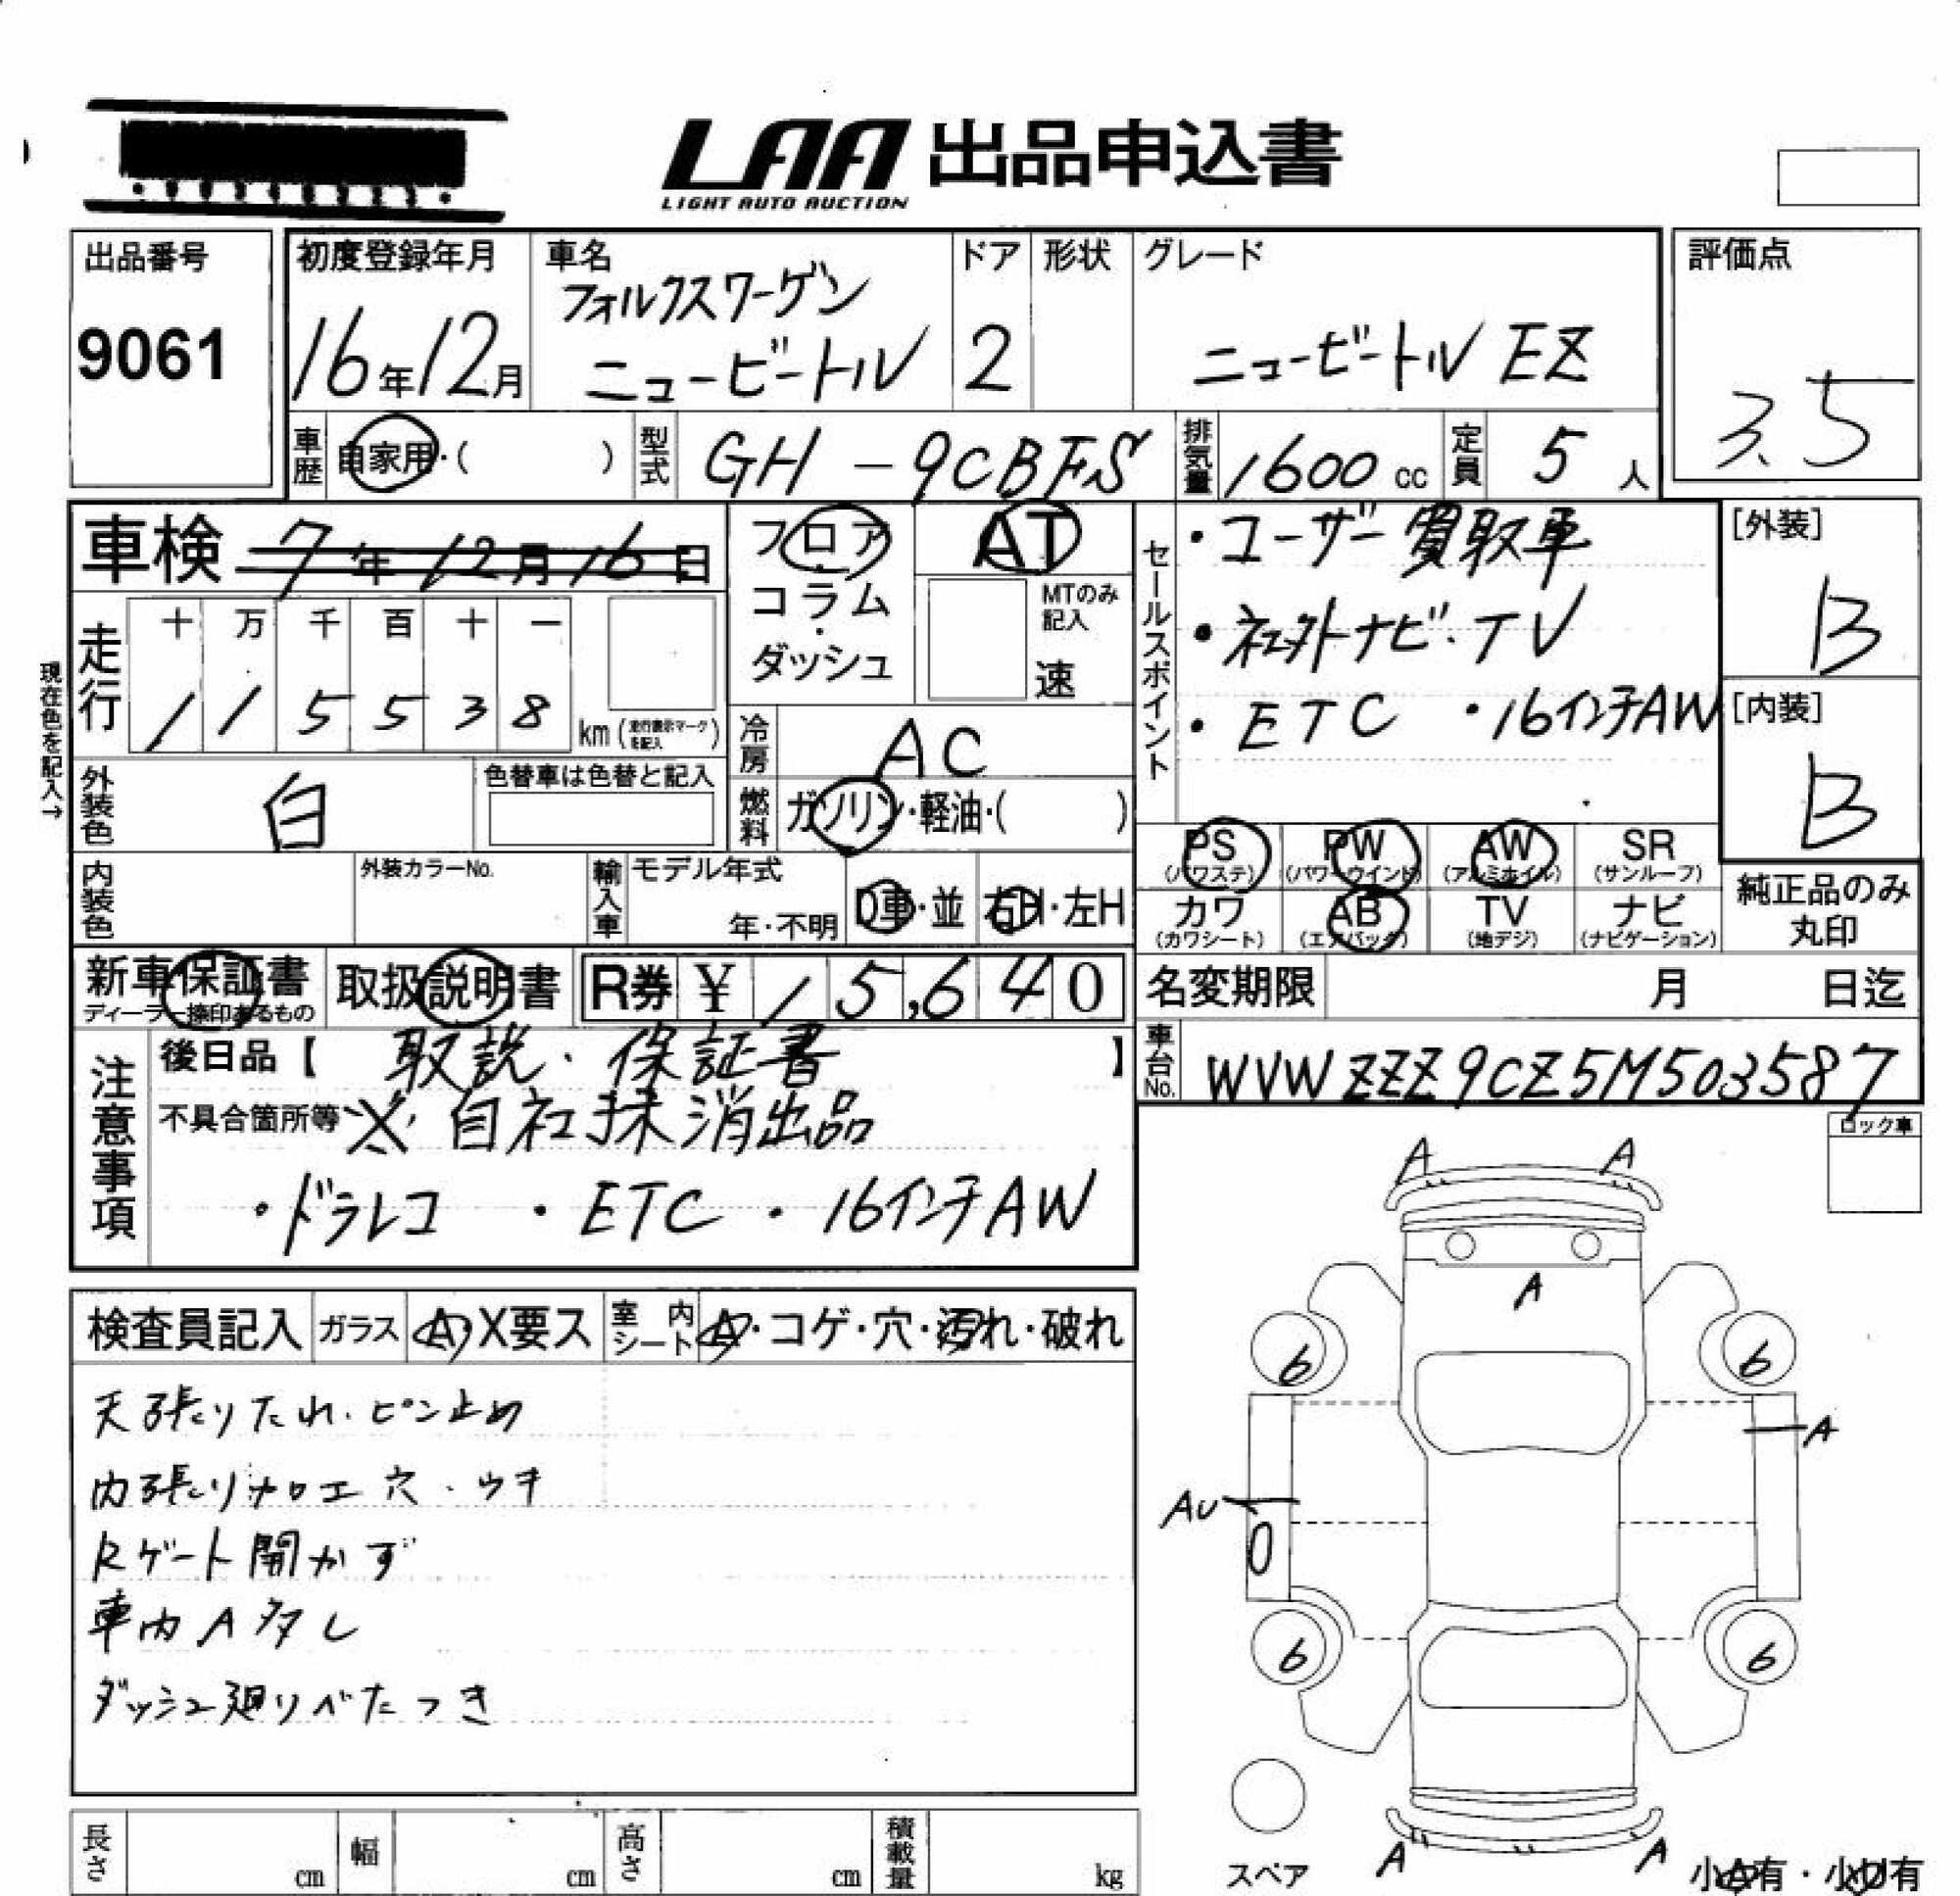 LAA 出品申込書
LIGHT AUTO AUCTION
出品番号
9061
初度登録年月
16年12月
車名
フォルクスワーゲン
ニュービートル
ドア
2
形状
グレード
ニュービートル EZ
評価点
3.5
車歴
自家用・( )
型式
GH-9CBFS
排気量
1600 cc
定員
5 人
車検 7年12月16日
フロア
・
コラム
・
ダッシュ
AT
MTのみ
記入
速
セールスポイント
・ユーザー買取車
・社外ナビ・TV
・ETC ・16インチAW
[外装]
B
[内装]
B
現在色を記入→
走行
十 万 千 百 十 一
1 1 5 5 3 8
km (走行表示マークを記入)
冷房
AC
外装色
白
色替車は色替と記入
燃料
ガソリン・軽油・( )
PS
(パワステ)
PW
(パワーウインド)
AW
(アルミホイル)
SR
(サンルーフ)
内装色
外装カラーNo.
輸入車
モデル年式
年・不明
D車・並
右H・左H
カワ
(カワシート)
AB
(エアバック)
TV
(地デジ)
ナビ
(ナビゲーション)
純正品のみ
丸印
新車保証書
ディーラー捺印あるもの
取扱説明書
R券 ¥ 15,640
名変期限 月 日迄
車台No.
WVWZZZ9CZ5M503587
注意事項
後日品【 取説・保証書 】
不具合箇所等 ※自社抹消出品
・ドラレコ ・ETC ・16インチAW
ロック車
検査員記入
ガラス
A・X要ス
室内シート
A・コゲ・穴・汚れ・破れ
天張りたれ・ピン止め
内張り加工穴・ウキ
Rゲート開かず
車内A多し
ダッシュ廻りべたつき
A A
A
6 6
A
AU
6 6
A A
スペア
小A有・小U有
長さ cm
幅 cm
高さ cm
積載量 kg